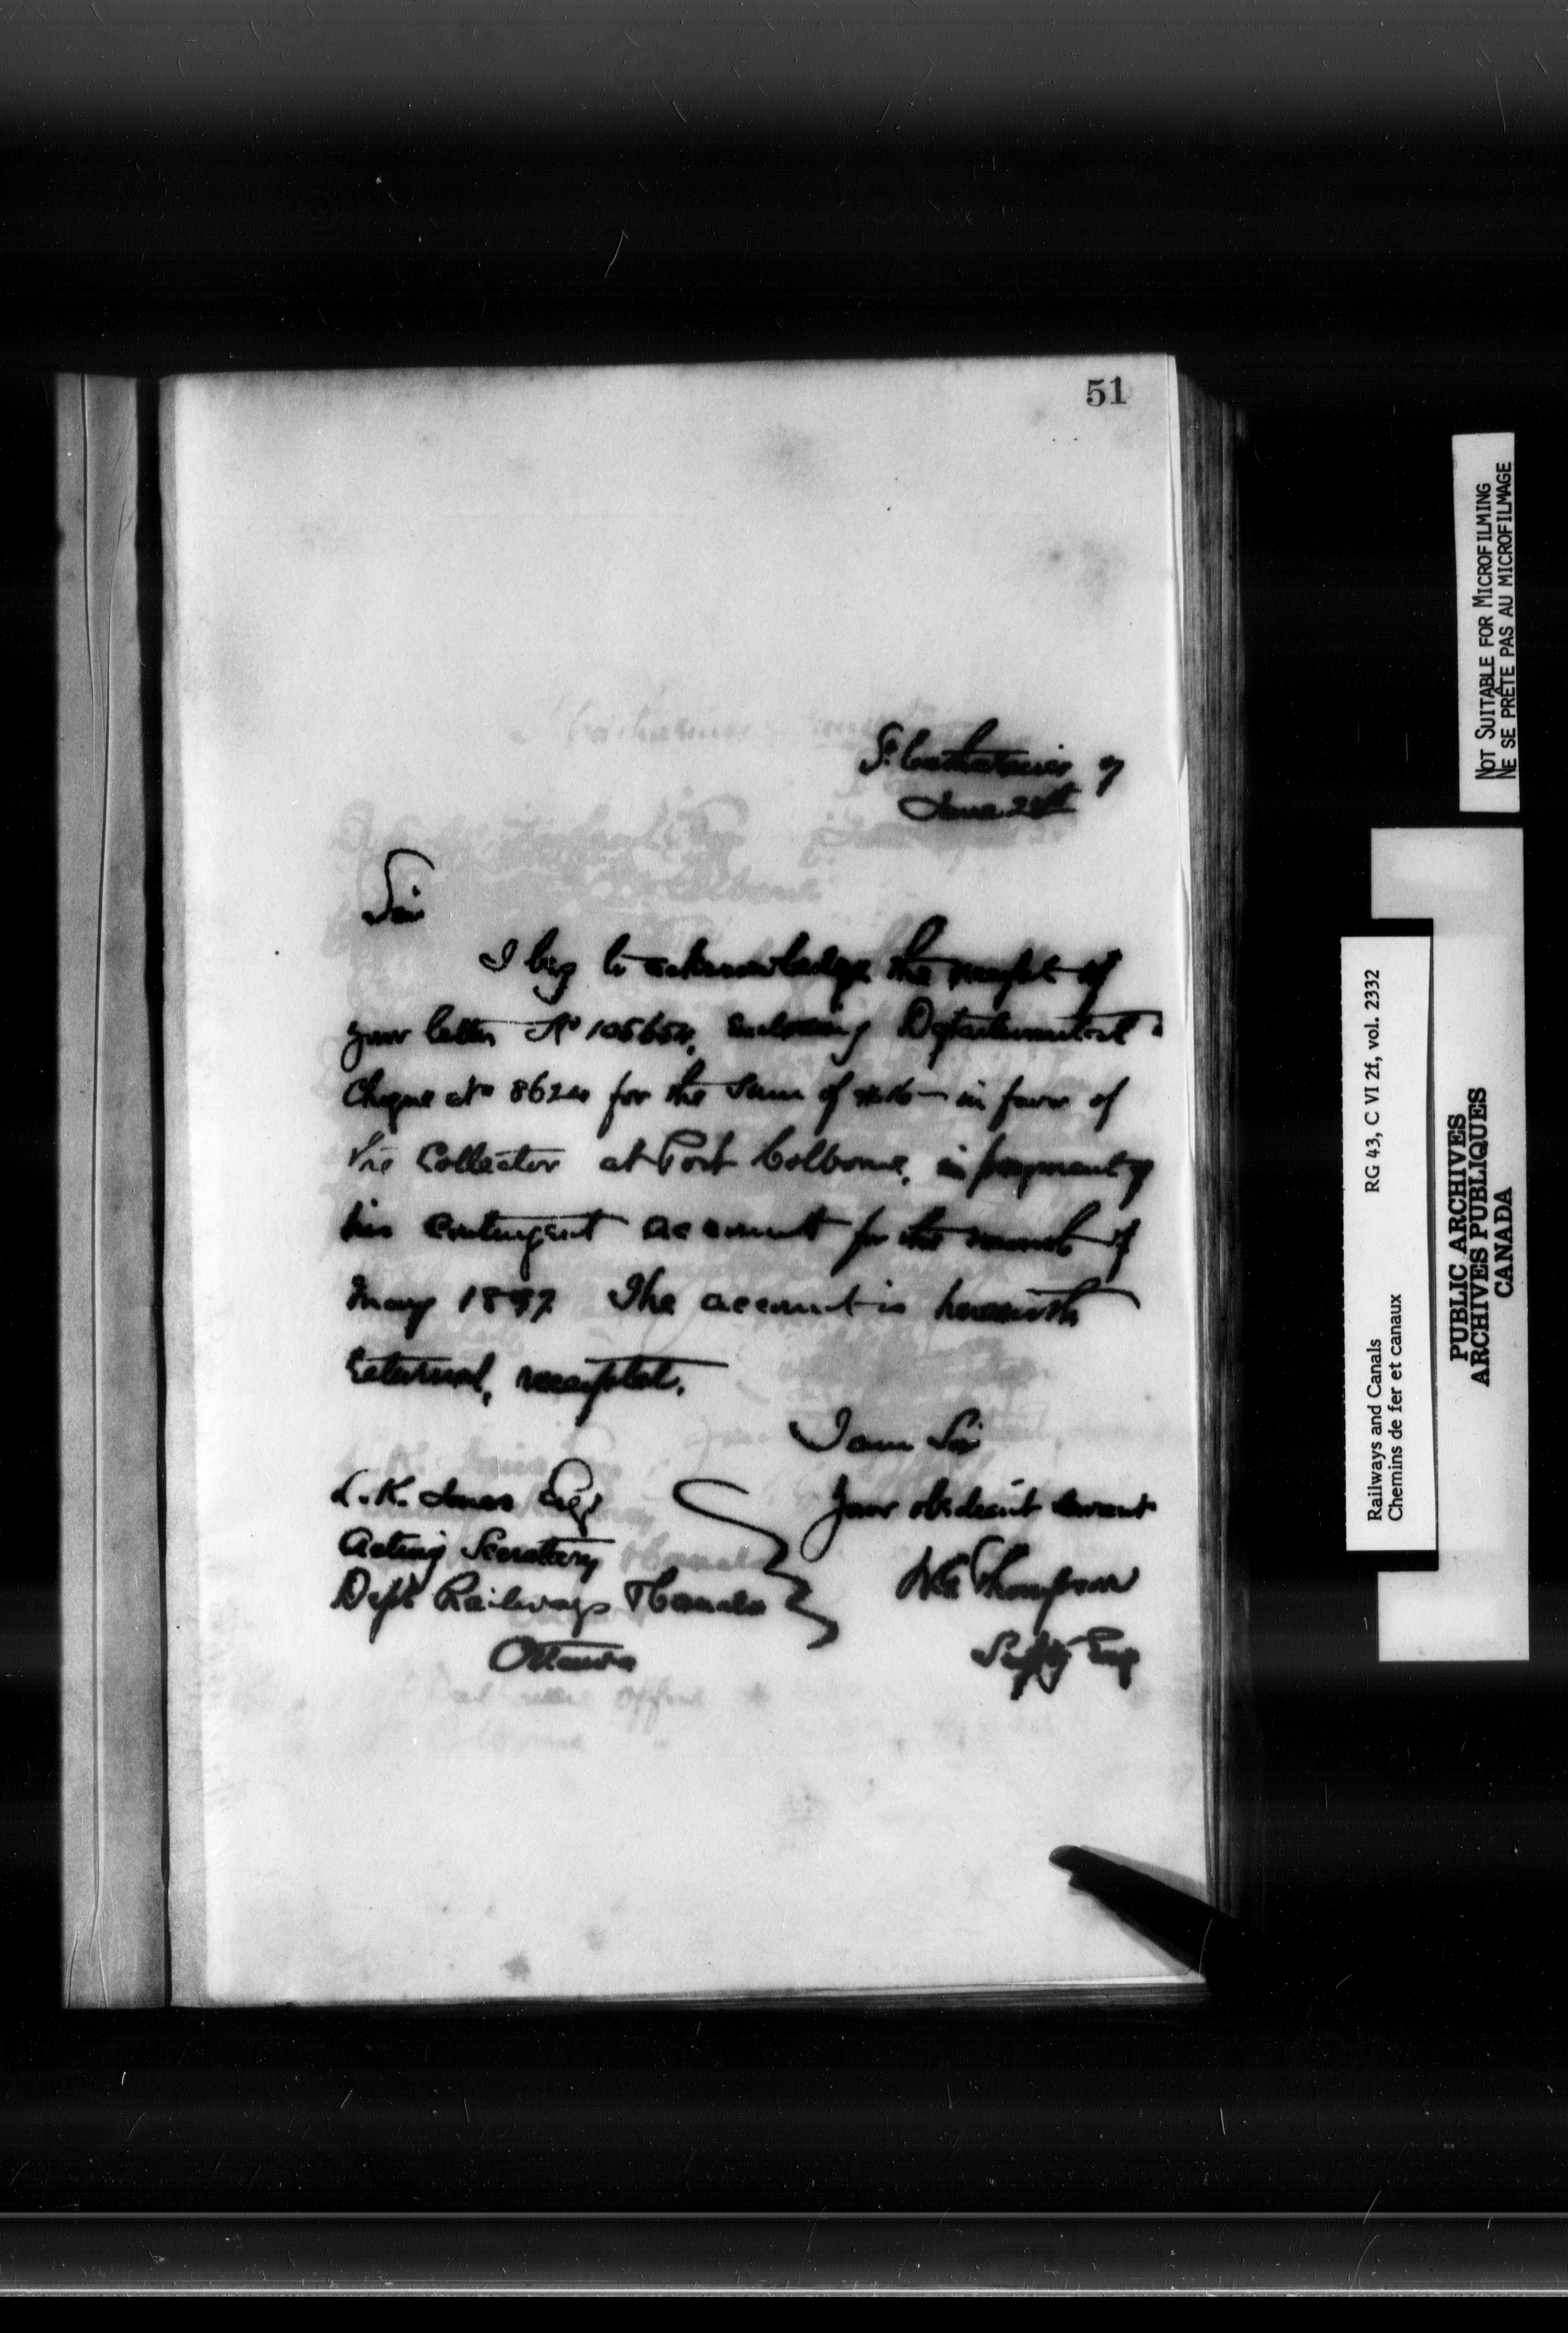 51
St. Catharines
June 21st
Sir
I beg to acknowledge the receipt of
your letter No 105654, enclosing Departmental
Cheque No 8624 for the sum of in favor of
the Collector at Port Colborne, in payment of
his contingent account for the month of
May 1897 The account is herewith
returned, receipted.
I am Sir
Your obedient servant
L. K. Jones Esq
Acting Secretary
Dept Railways & Canals
Ottawa
W.G. Thompson
Supt'g Eng
NOT SUITABLE FOR MICROFILMING
NE SE PRÊTE PAS AU MICROFILMAGE
Railways and Canals RG 43, C VI 2f, vol. 2332
Chemins de fer et canaux
PUBLIC ARCHIVES
ARCHIVES PUBLIQUES
CANADA